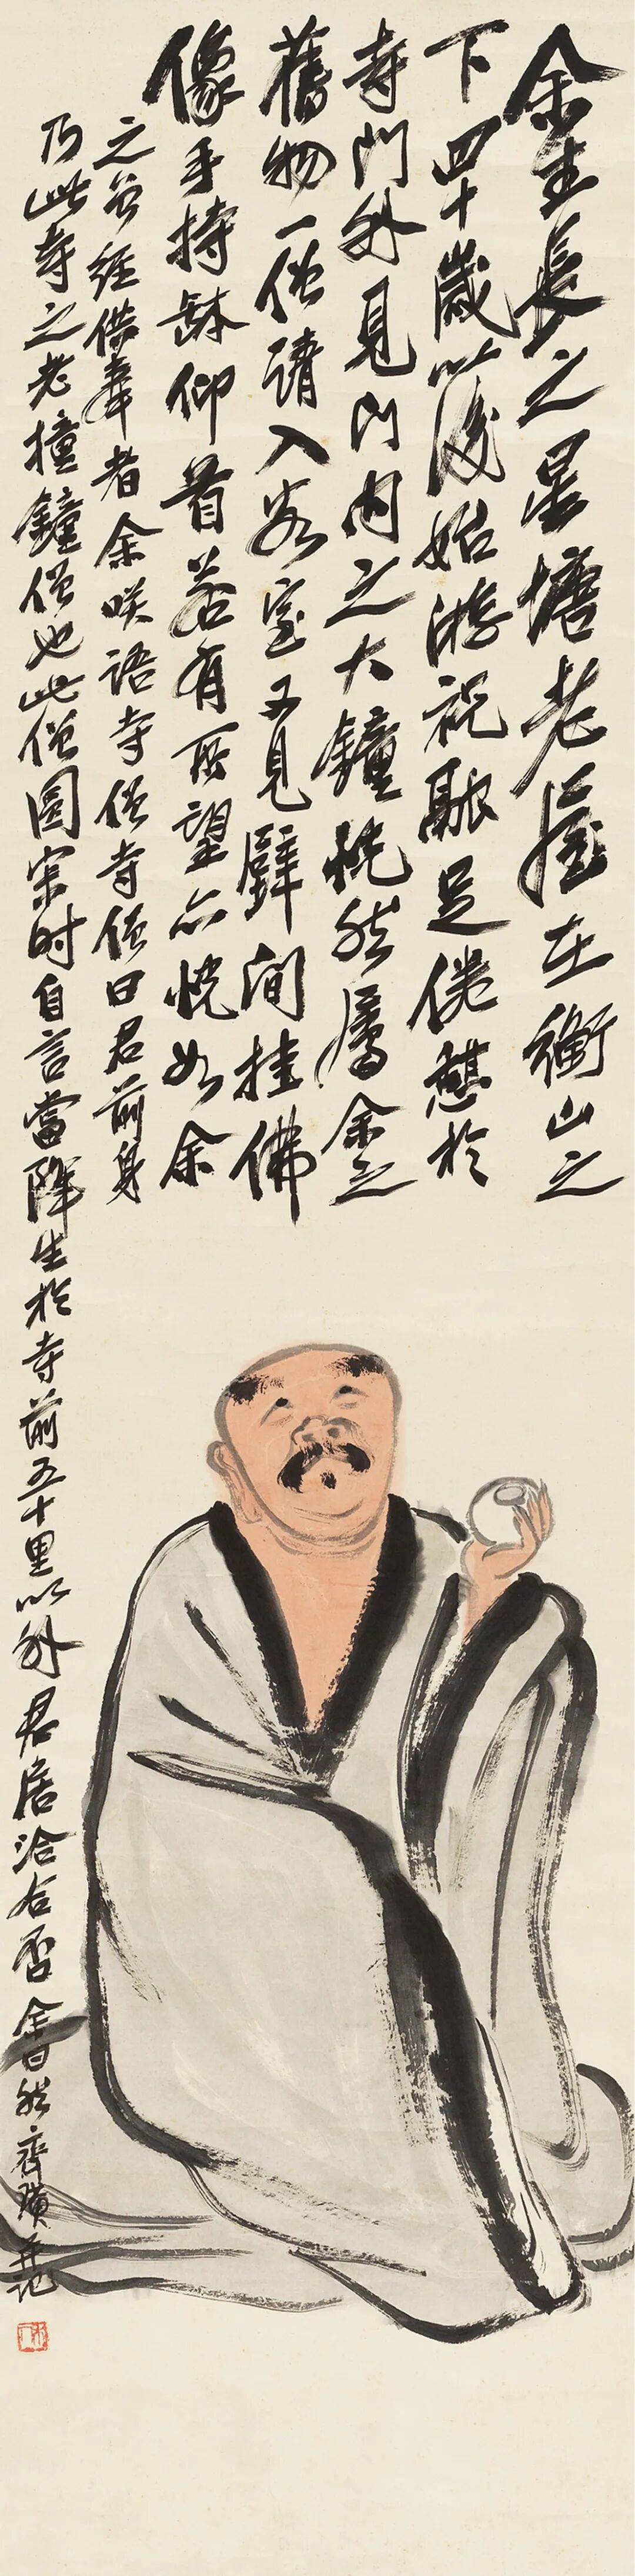 余生長之星塘老屋在衡山之
下四十歲以後始游祝融足倦憩於
寺門外見門內之大鐘恍然屬余之
舊物一僧請入客室又見壁間挂佛
像手持缽仰首若有所望亦恍如余
之曾經供奉者余咲語寺僧寺僧曰君前身
乃此寺之老撞鐘僧也此僧圓宗時自言當降生於寺前五十里以外君居洽合否余曰然齊璜并記